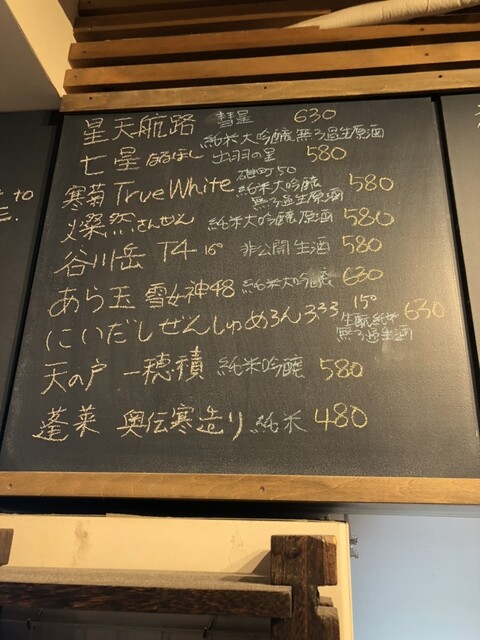 星天航路 彗星 630
純米大吟醸 無ろ過生原酒
七星 ななほし 出羽の里 580
雄町50
寒菊 True White 純米大吟醸 580
無ろ過生原酒
燦然 さんぜん 純米大吟醸原酒 580
谷川岳 T4 16° 非公開 生酒 580
あら玉 雪女神48 純米大吟醸 630
にいだしぜんしゅめろん3.33 15° 生酛 純米 630
無ろ過生酒
天の戸 一穂積 純米吟醸 580
蓬莱 奥伝寒造り 純米 480
to